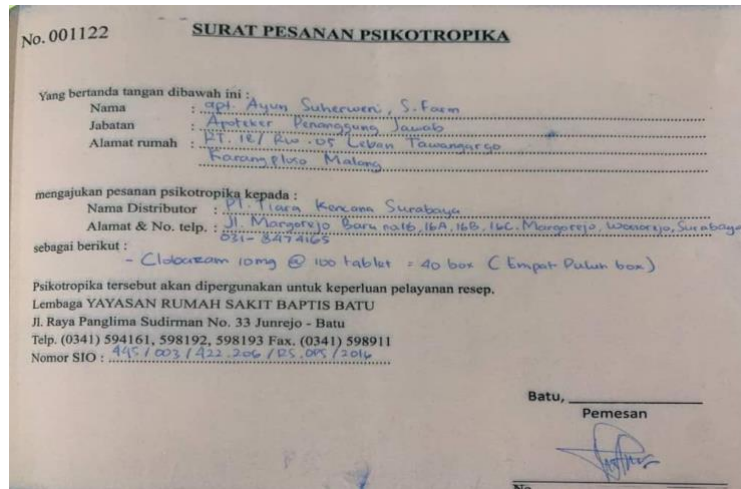 No. 001122
SURAT PESANAN PSIKOTROPIKA
Yang bertanda tangan dibawah ini :
Nama : apt. Ayun Suherweni, S.Farm
Jabatan : Apoteker Penanggung Jawab
Alamat rumah : RT. 12/ RW. 05 Leban Tawangargo
Karangploso Malang
mengajukan pesanan psikotropika kepada :
Nama Distributor : PT. Tiara Kencana Surabaya
Alamat & No. telp. : Jl. Margorejo Baru no.16, 16A, 16B, 16C. Margorejo, Wonorejo, Surabaya
031- 8474165
sebagai berikut :
- Clobazam 10mg @ 100 tablet = 40 box ( Empat Puluh box )
Psikotropika tersebut akan dipergunakan untuk keperluan pelayanan resep.
Lembaga YAYASAN RUMAH SAKIT BAPTIS BATU
Jl. Raya Panglima Sudirman No. 33 Junrejo - Batu
Telp. (0341) 594161, 598192, 598193 Fax. (0341) 598911
Nomor SIO : 445 / 003 / 422.206 / RS.OPS / 2016
Batu,
Pemesan
No